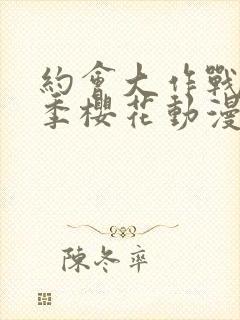 約會大作戰
季櫻花動漫
陳冬率